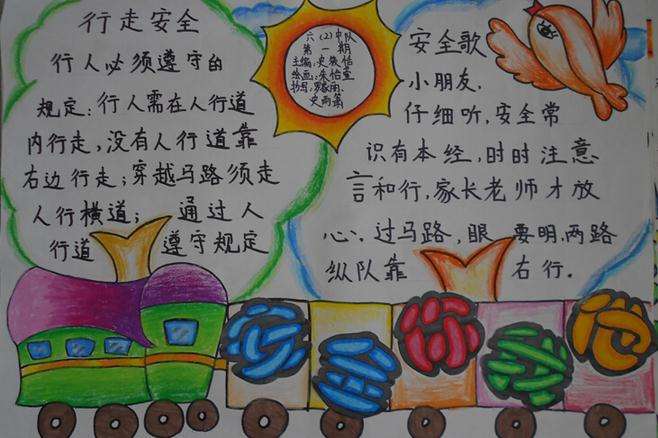 行走安全
行人必须遵守的
规定:行人需在人行道
内行走,没有人行道靠
右边行走;穿越马路须走
人行横道; 通过人
行道 遵守规定
六(2)中队
第一期
主编:史筱怡
绘画:朱怡萱
史雨菡
安全歌
小朋友,
仔细听,安全常
识有本经,时时注意
言和行,家长老师才放
心。过马路,眼要明,两路
纵队靠右行.
安全你我他